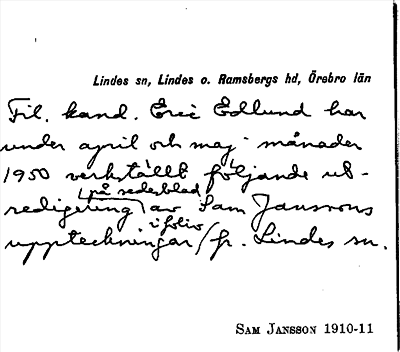 Lindes sn, Lindes o. Ramsbergs hd, Örebro län
Fil. kand. Eric Edlund har
under april och maj månader
1950 verkställt följande ut-
på sederblad
redigering av Sam Janssons
i folio
uppteckningar fr. Lindes sn.
SAM JANSSON 1910-11